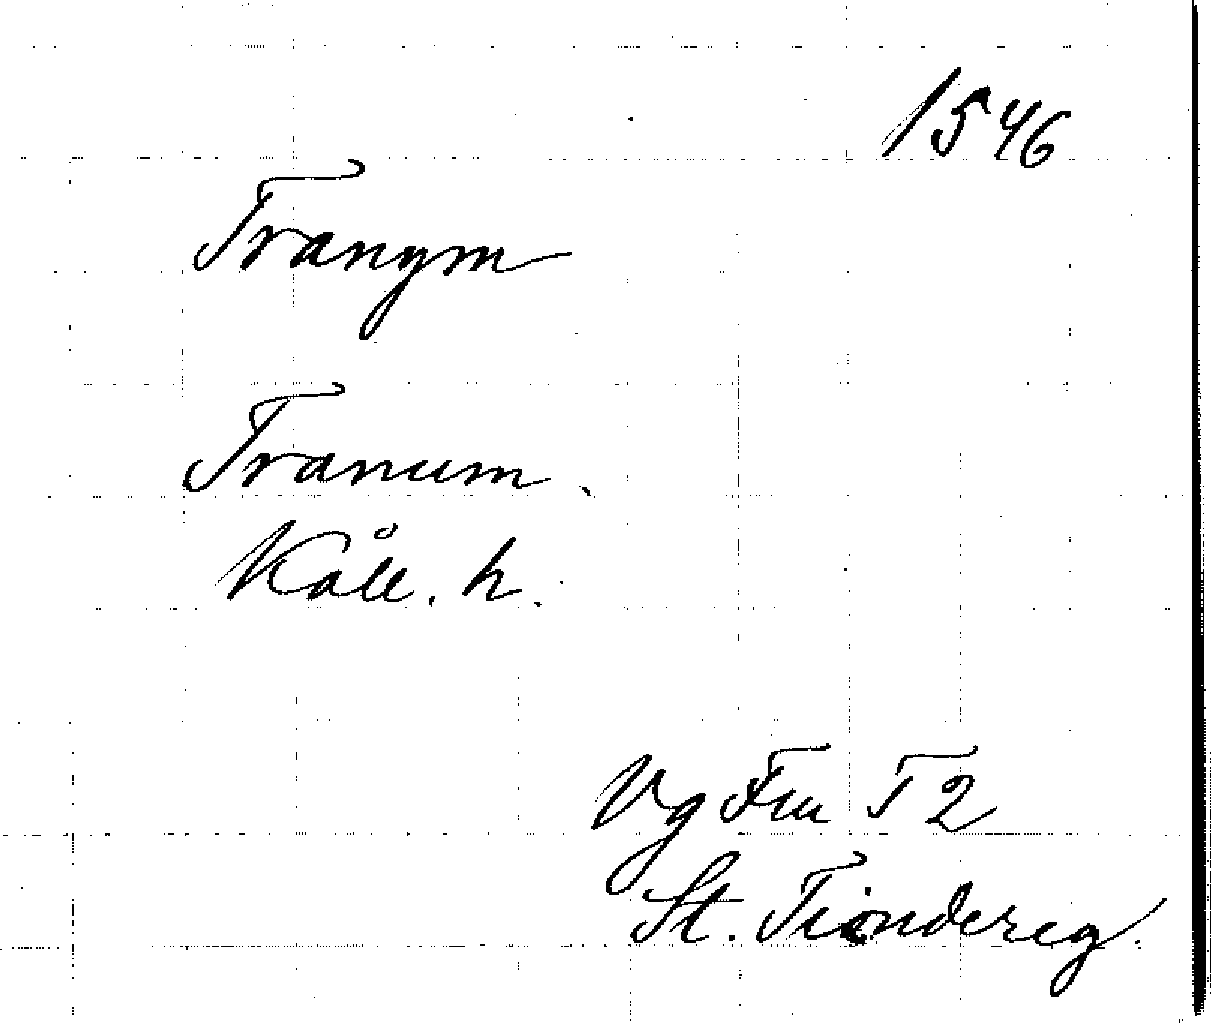 1546
Tranym
Tranum.
Kåll. h.
Vg Fru T 2
St. Tiondereg.